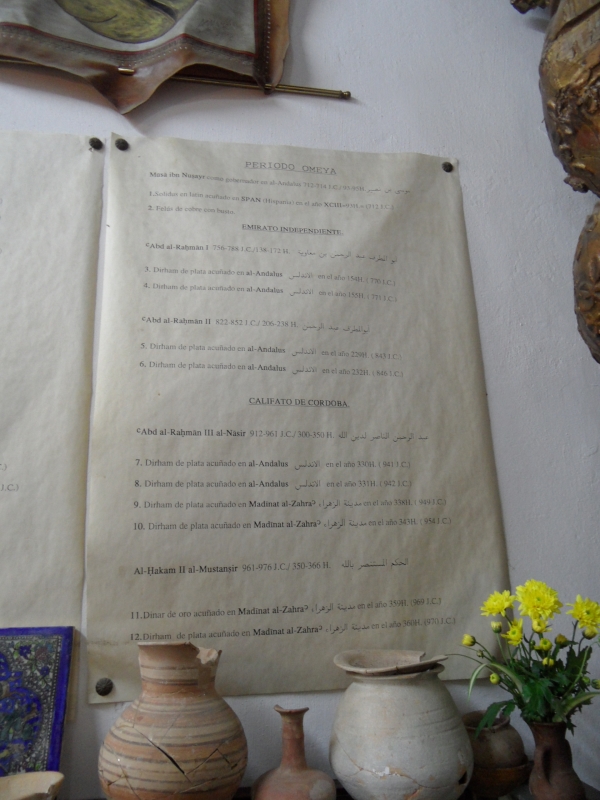 J.C.)
PERIODO OMEYA
Musà ibn Nuṣayr como gobernador en al-Andalus 712-714 J.C./ موسى بن نصير
1. Solidus en latín acuñado en SPAN (Hispania) en el año XCIII=93H.= (712 J.C.)
2. Felús de cobre con busto.
EMIRATO INDEPENDIENTE
ᶜAbd al-Raḥmān I 756-788 J.C./ 138-172 H. أبو المطرف عبد الرحمن بن معاوية
3. Dirham de plata acuñado en al-Andalus الاندلس en el año 154H. ( 770 J.C.)
4. Dirham de plata acuñado en al-Andalus الاندلس en el año 155H. ( 771 J.C.)
ᶜAbd al-Raḥmān II 822-852 J.C./ 206-238 H. أبو المطرف عبد الرحمن
5. Dirham de plata acuñado en al-Andalus الاندلس en el año 229H. ( 843 J.C.)
6. Dirham de plata acuñado en al-Andalus الاندلس en el año 232H. ( 846 J.C.)
CALIFATO DE CORDOBA
ᶜAbd al-Raḥmān III al-Nāṣir 912-961 J.C./ 300-350 H. عبد الرحمن الناصر لدين الله
7. Dirham de plata acuñado en al-Andalus الاندلس en el año 330H. ( 941 J.C.)
8. Dirham de plata acuñado en al-Andalus الاندلس en el año 331H. ( 942 J.C.)
9. Dirham de plata acuñado en Madīnat al-Zahraʾ مدينة الزهراء en el año 338H. ( 949 J.C.)
10. Dirham de plata acuñado en Madīnat al-Zahraʾ مدينة الزهراء en el año 343H. ( 954 J.C.)
Al-Ḥakam II al-Mustanṣir 961-976 J.C./ 350-366 H. الحكم المستنصر بالله
11. Dinar de oro acuñado en Madīnat al-Zahraʾ مدينة الزهراء en el año 359H. (969 J.C.)
12. Dirham de plata acuñado en Madīnat al-Zahraʾ مدينة الزهراء en el año 360H. (970 J.C.)